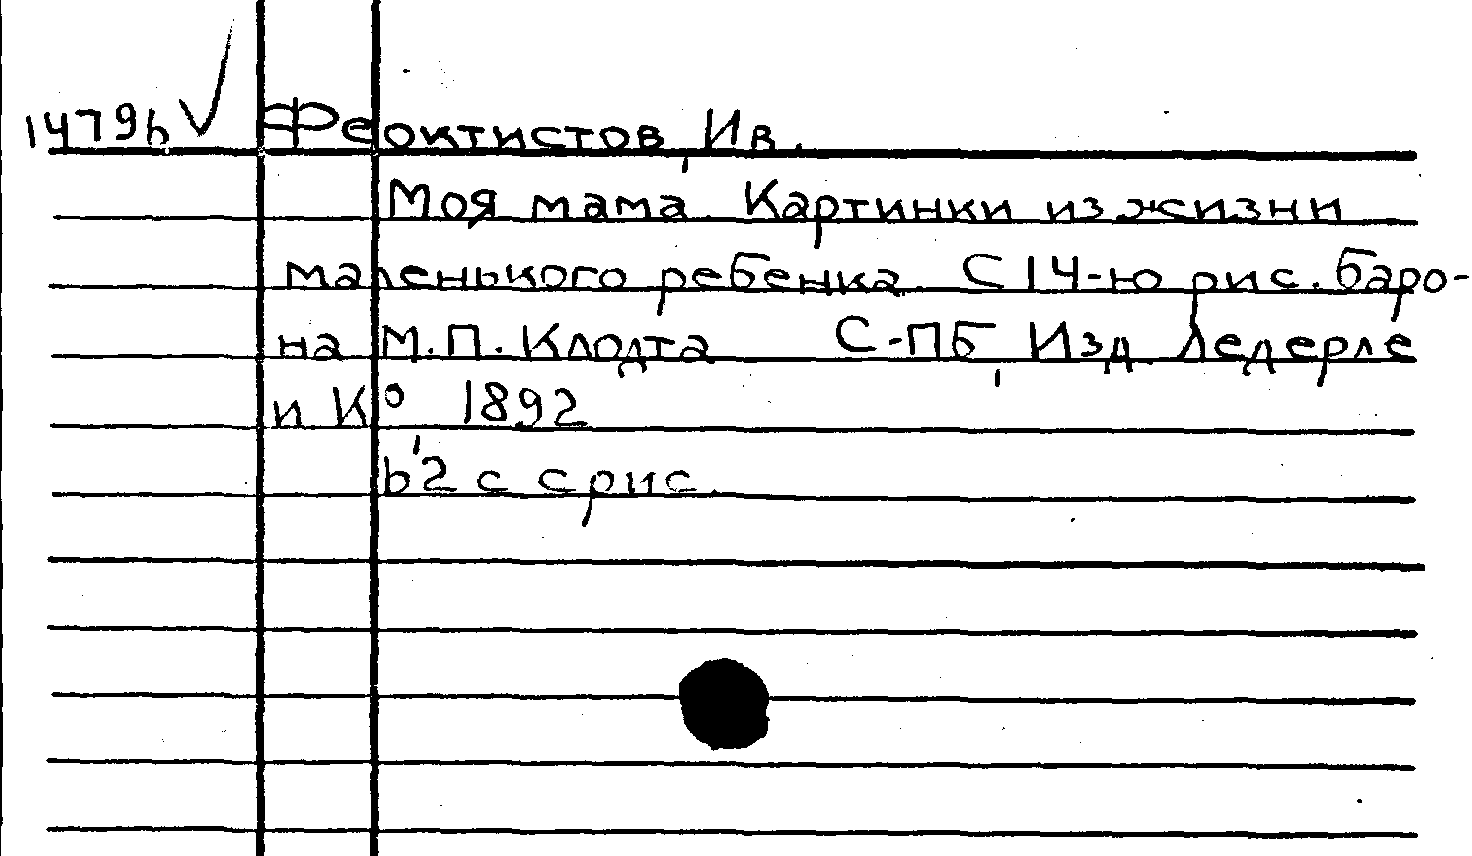 14796 √ Феоктистов, Ив.
Моя мама. Картинки из жизни
маленького ребенка. С 14-ю рис. баро-
на М.П. Клодта С-ПБ, Изд. Ледерле
и К° 1892
62 с с рис.